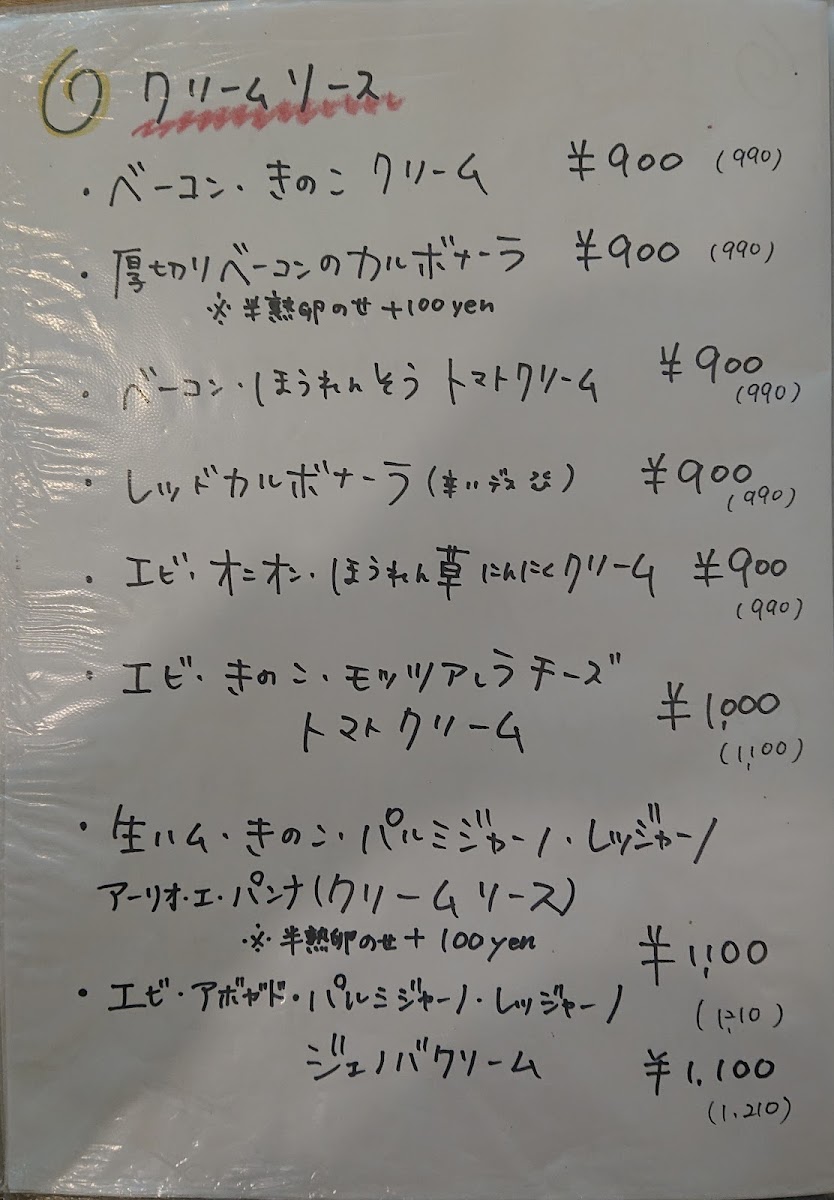 ⑥ クリームソース
・ベーコン・きのこ クリーム ¥900 (990)
・厚切りベーコンのカルボナーラ ¥900 (990)
※半熟卵のせ+100yen
・ベーコン・ほうれんそう トマトクリーム ¥900
(990)
・レッドカルボナーラ(辛いデス ) ¥900
(990)
・エビ・オニオン・ほうれん草 にんにくクリーム ¥900
(990)
・エビ・きのこ・モッツアレラチーズ
トマトクリーム ¥1,000
(1,100)
・生ハム・きのこ・パルミジャーノ・レッジャーノ
アーリオ・エ・パンナ(クリームソース)
※半熟卵のせ+100yen ¥1,100
(1,210)
・エビ・アボガド・パルミジャーノ・レッジャーノ
ジェノバクリーム ¥1,100
(1,210)